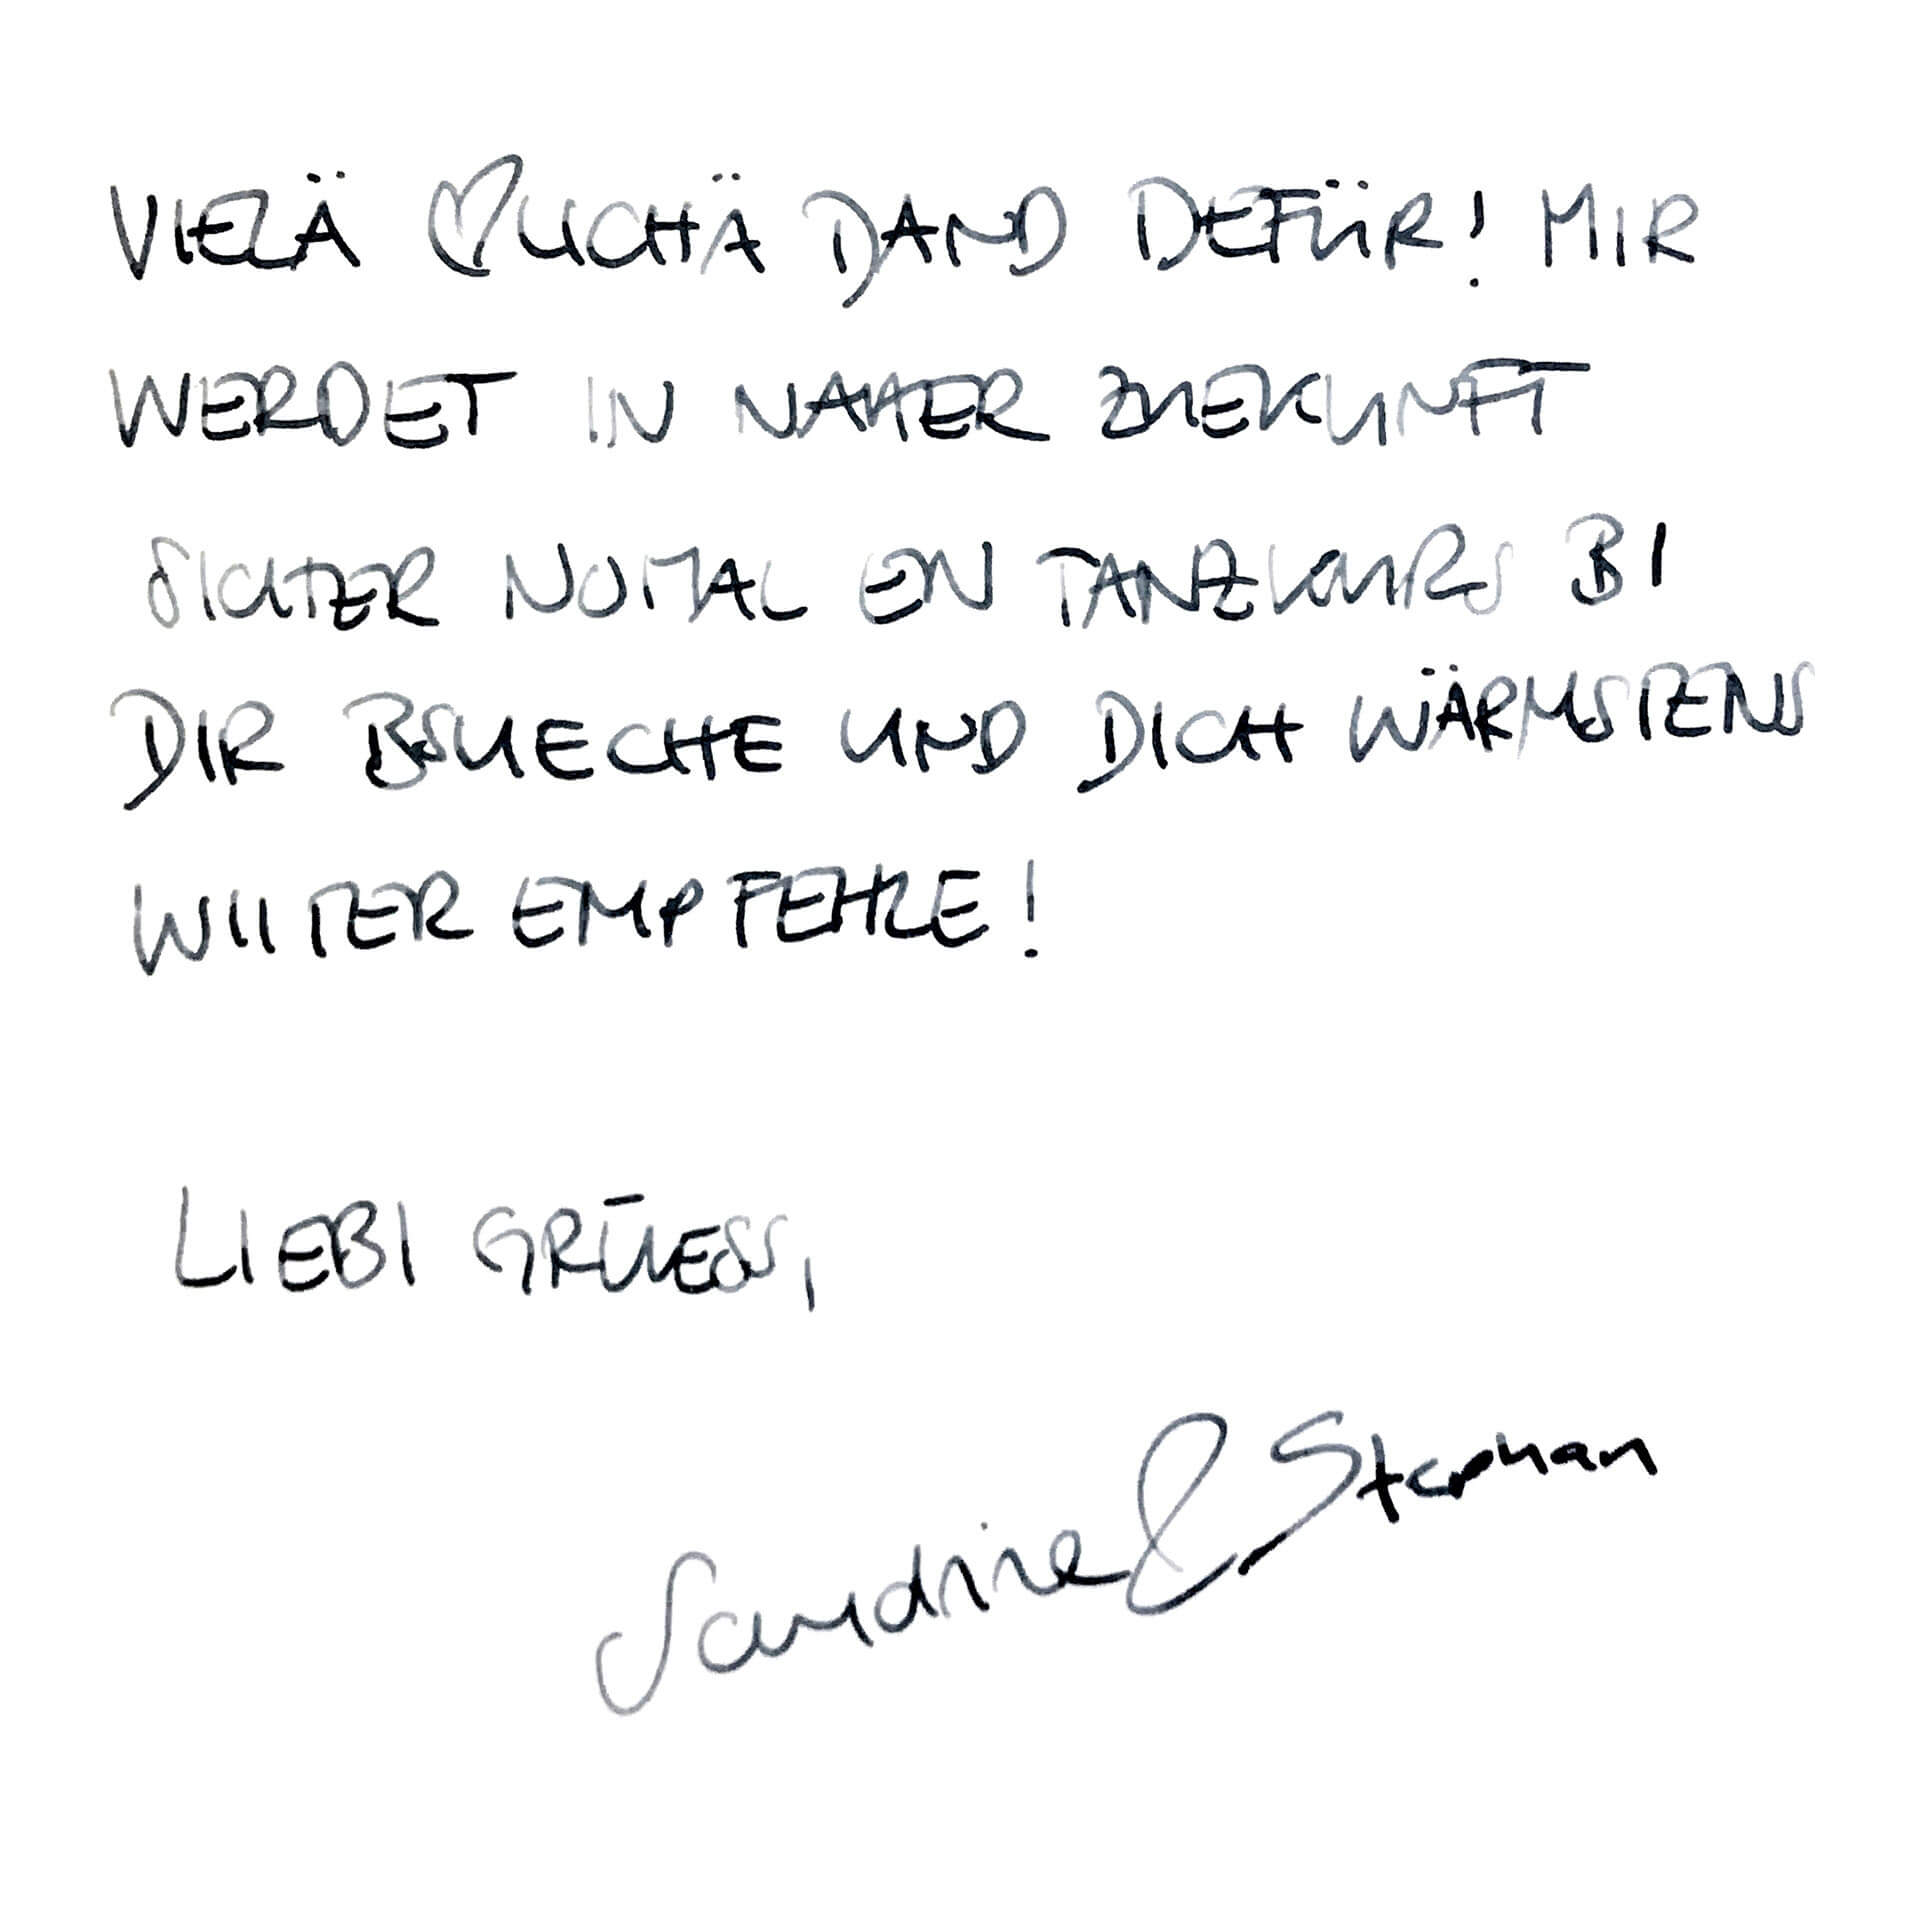 VIELÄ ♡LICHÄ DANK DEFÜR! MIR
WERDET IN NAHER ZUEKUNFT
SICHER NOMAL EN TANZKURS BI
DIR BSUECHE UND DICH WÄRMSTENS
WIITER EMPFEHLE!
LIEBI GRÜESS,
Sandrine & Stephan